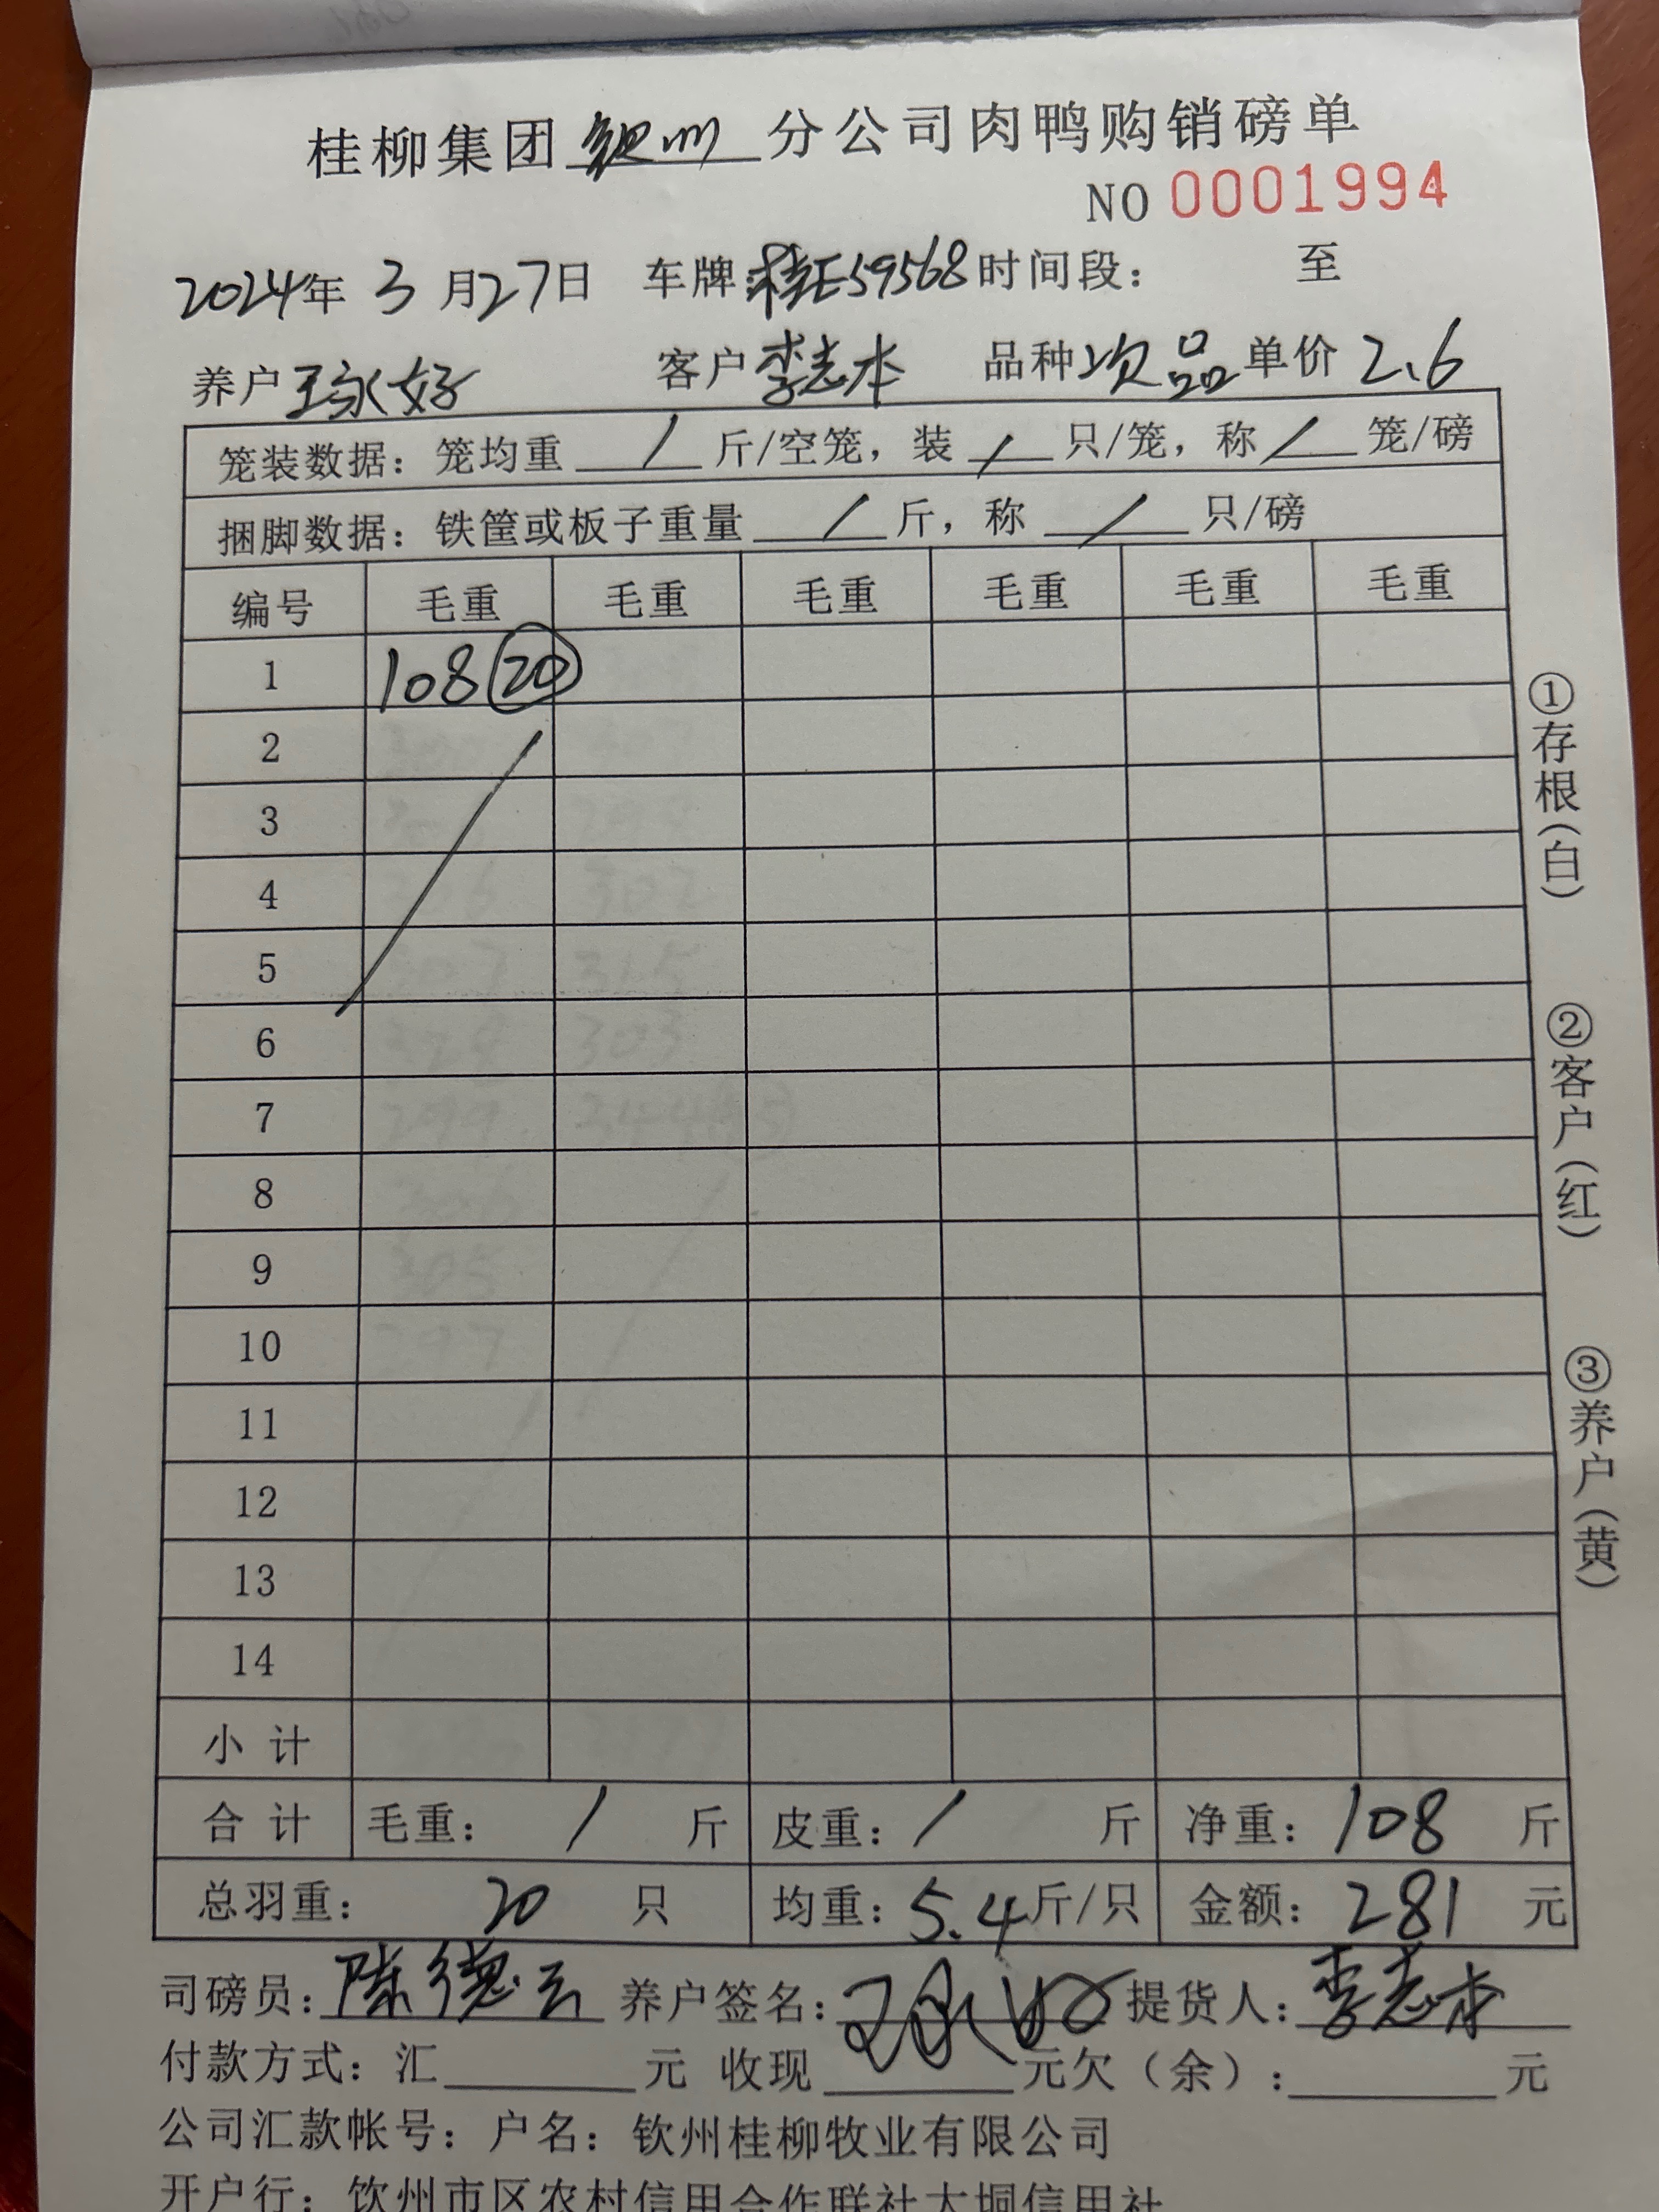 桂柳集团钦州分公司肉鸭购销磅单
NO 0001994
2024年 3月27日 车牌:桂E59568 时间段: 至
养户 王永好 客户 李志本 品种 次品 单价 2.6
笼装数据:笼均重 / 斤/空笼,装 / 只/笼,称 / 笼/磅
捆脚数据:铁筐或板子重量 / 斤,称 / 只/磅
编号 毛重 毛重 毛重 毛重 毛重 毛重
1 108 20
2
3
4
5
6
7
8
9
10
11
12
13
14
小计
合计 毛重: / 斤 皮重: / 斤 净重: 108 斤
总羽重: 20 只 均重: 5.4 斤/只 金额: 281 元
司磅员: 陈德云 养户签名: 王永好 提货人: 李志本
付款方式:汇 元 收现 元欠(余): 元
公司汇款帐号:户名:钦州桂柳牧业有限公司
开户行:钦州市区农村信用合作联社大垌信用社
①存根(白)
②客户(红)
③养户(黄)